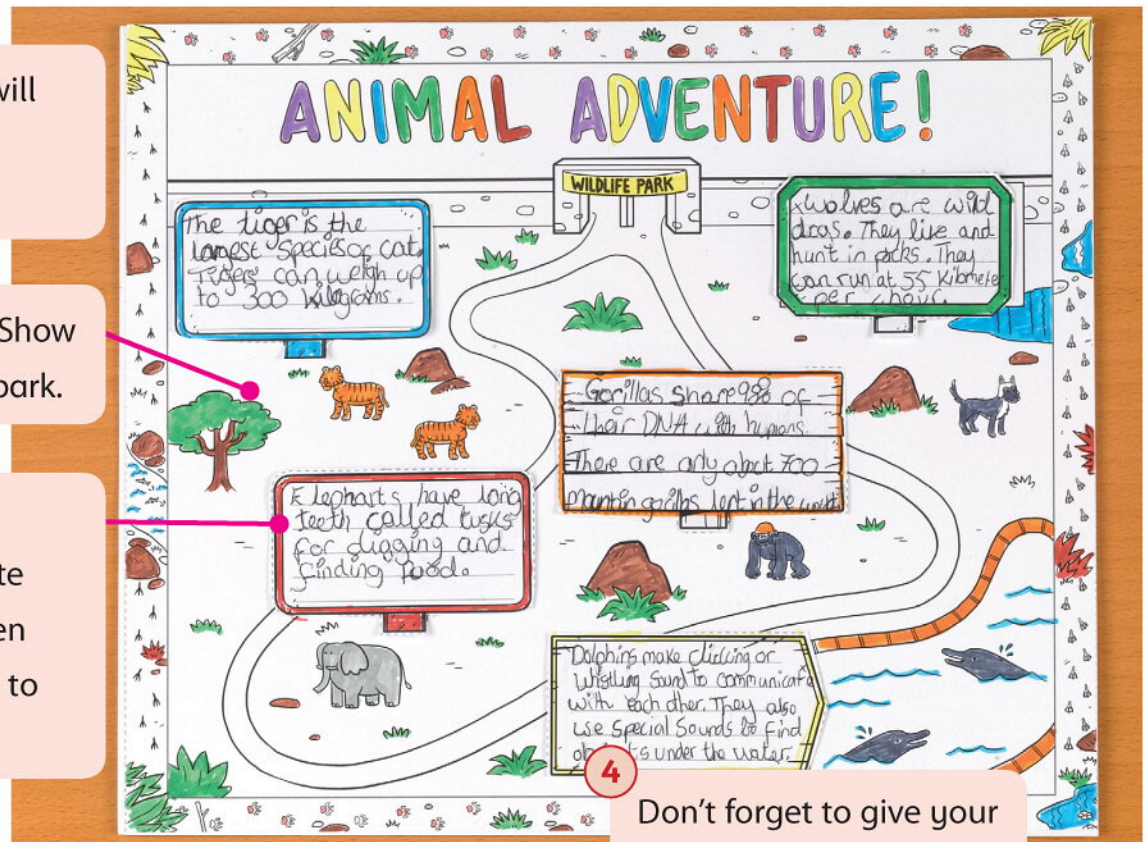 will
Show
park.
te
en
to
ANIMAL ADVENTURE!
WILDLIFE PARK
The tiger is the
largest species of cat.
Tigers can weigh up
to 300 kilograms.
Wolves are wild
dogs. They live and
hunt in packs. They
can run at 55 kilometre
per hour.
Gorillas share 98% of
their DNA with humans.
There are only about 700
mountain gorillas left in the world.
Elephants have long
teeth called tusks
for digging and
finding food.
Dolphins make clicking or
whistling sound to communicate
with each other. They also
use special sounds to find
under the water.
4
Don't forget to give your